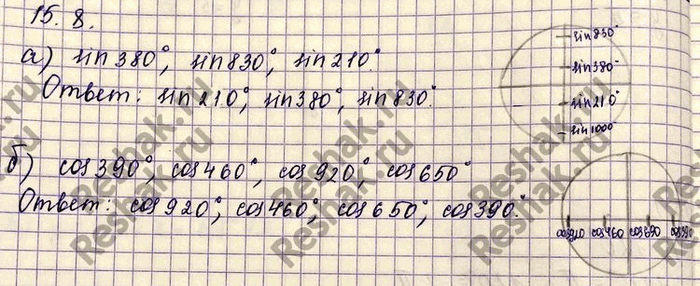 15.8.
а) sin380°, sin830°, sin210°.
Ответ: sin210°, sin380°, sin830°.
sin830°
sin380°
sin210°
sin1000°
б) cos390°, cos460°, cos920°, cos650°
Ответ: cos920°, cos460°, cos650°, cos390°.
cos920 cos460 cos690 cos390
Reshak.ru
Reshak.ru
Reshak.ru
Reshak.ru
Reshak.ru
Reshak.ru